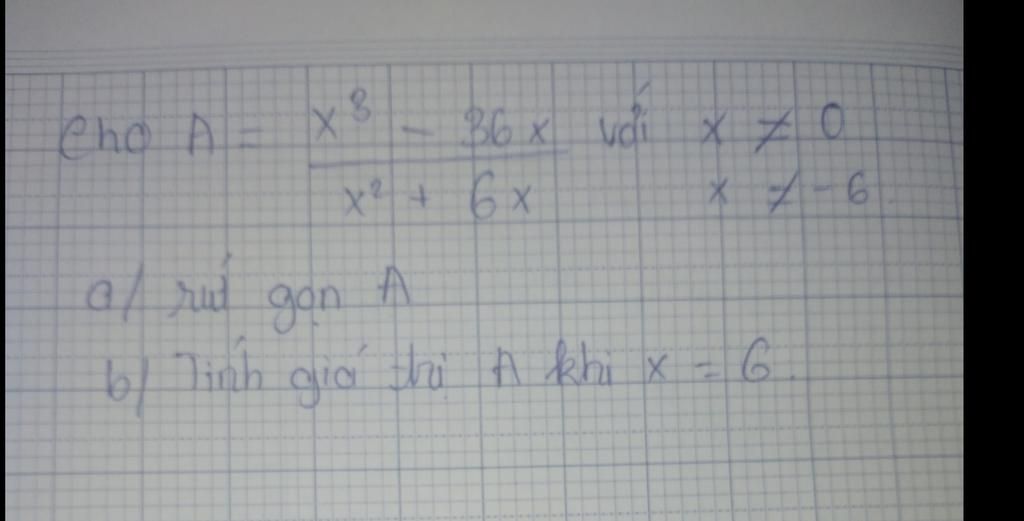 Cho A = x³ - 36x / x² + 6x với x ≠ 0
x ≠ -6
a/ rút gọn A
b/ Tính giá trị A khi x = 6.